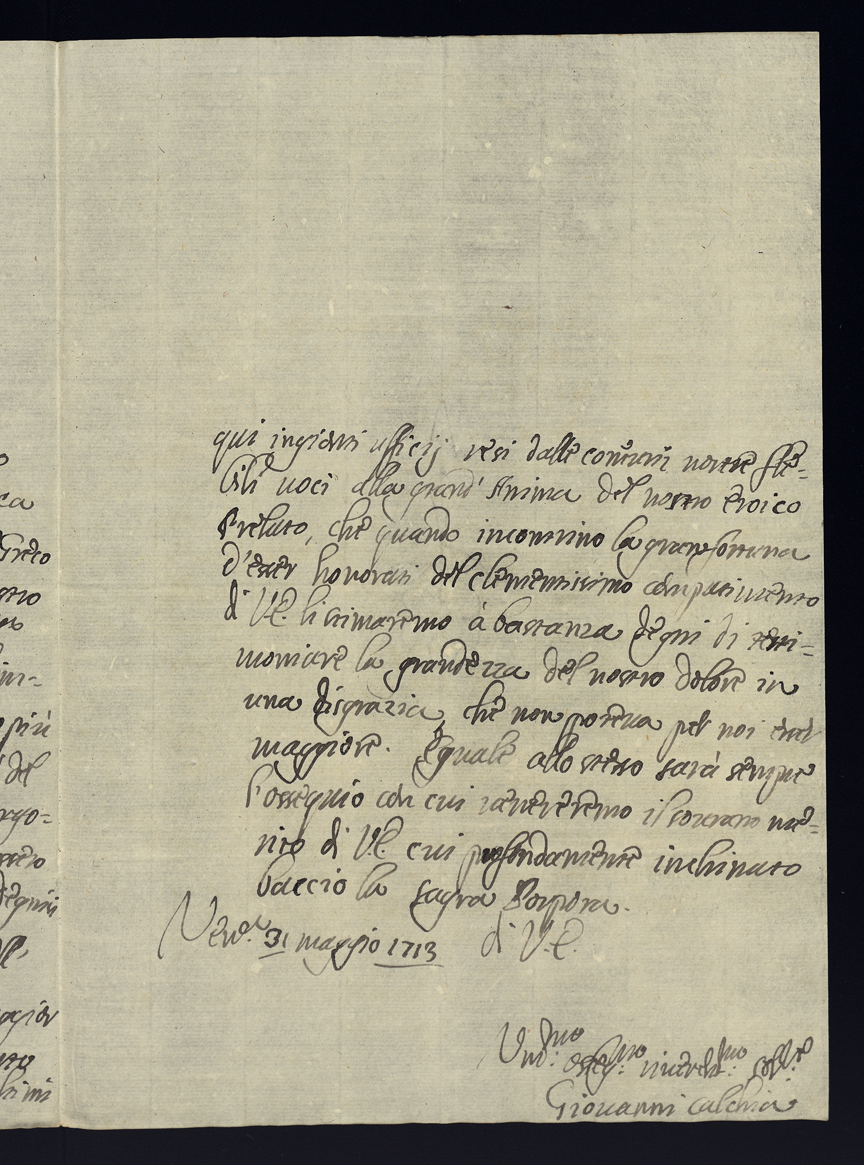 qui ingionti ufficij resi dalle comuni nostre fle=
bili voci alla grand' Anima del nostro eroico
Prelato, che quando incontrino la gran fortuna
d'esser honorati del clementissimo compatimento
di V.E. li stimaremo à bastanza degni di testi=
moniare la grandezza del nostro dolore in
una disgrazia, che non poteva per noi esser
maggiore. Eguale allo stesso sarà sempre
l'ossequio con cui venereremo il sovrano me=
rito di V.E. cui profondamente inchinato
baccio la sagra Porpora.
Ven.a 31 maggio 1713 di V.E.
Um.mo
Giovanni Calchia
ca
Greco
stro
im=
più
del
rgo=